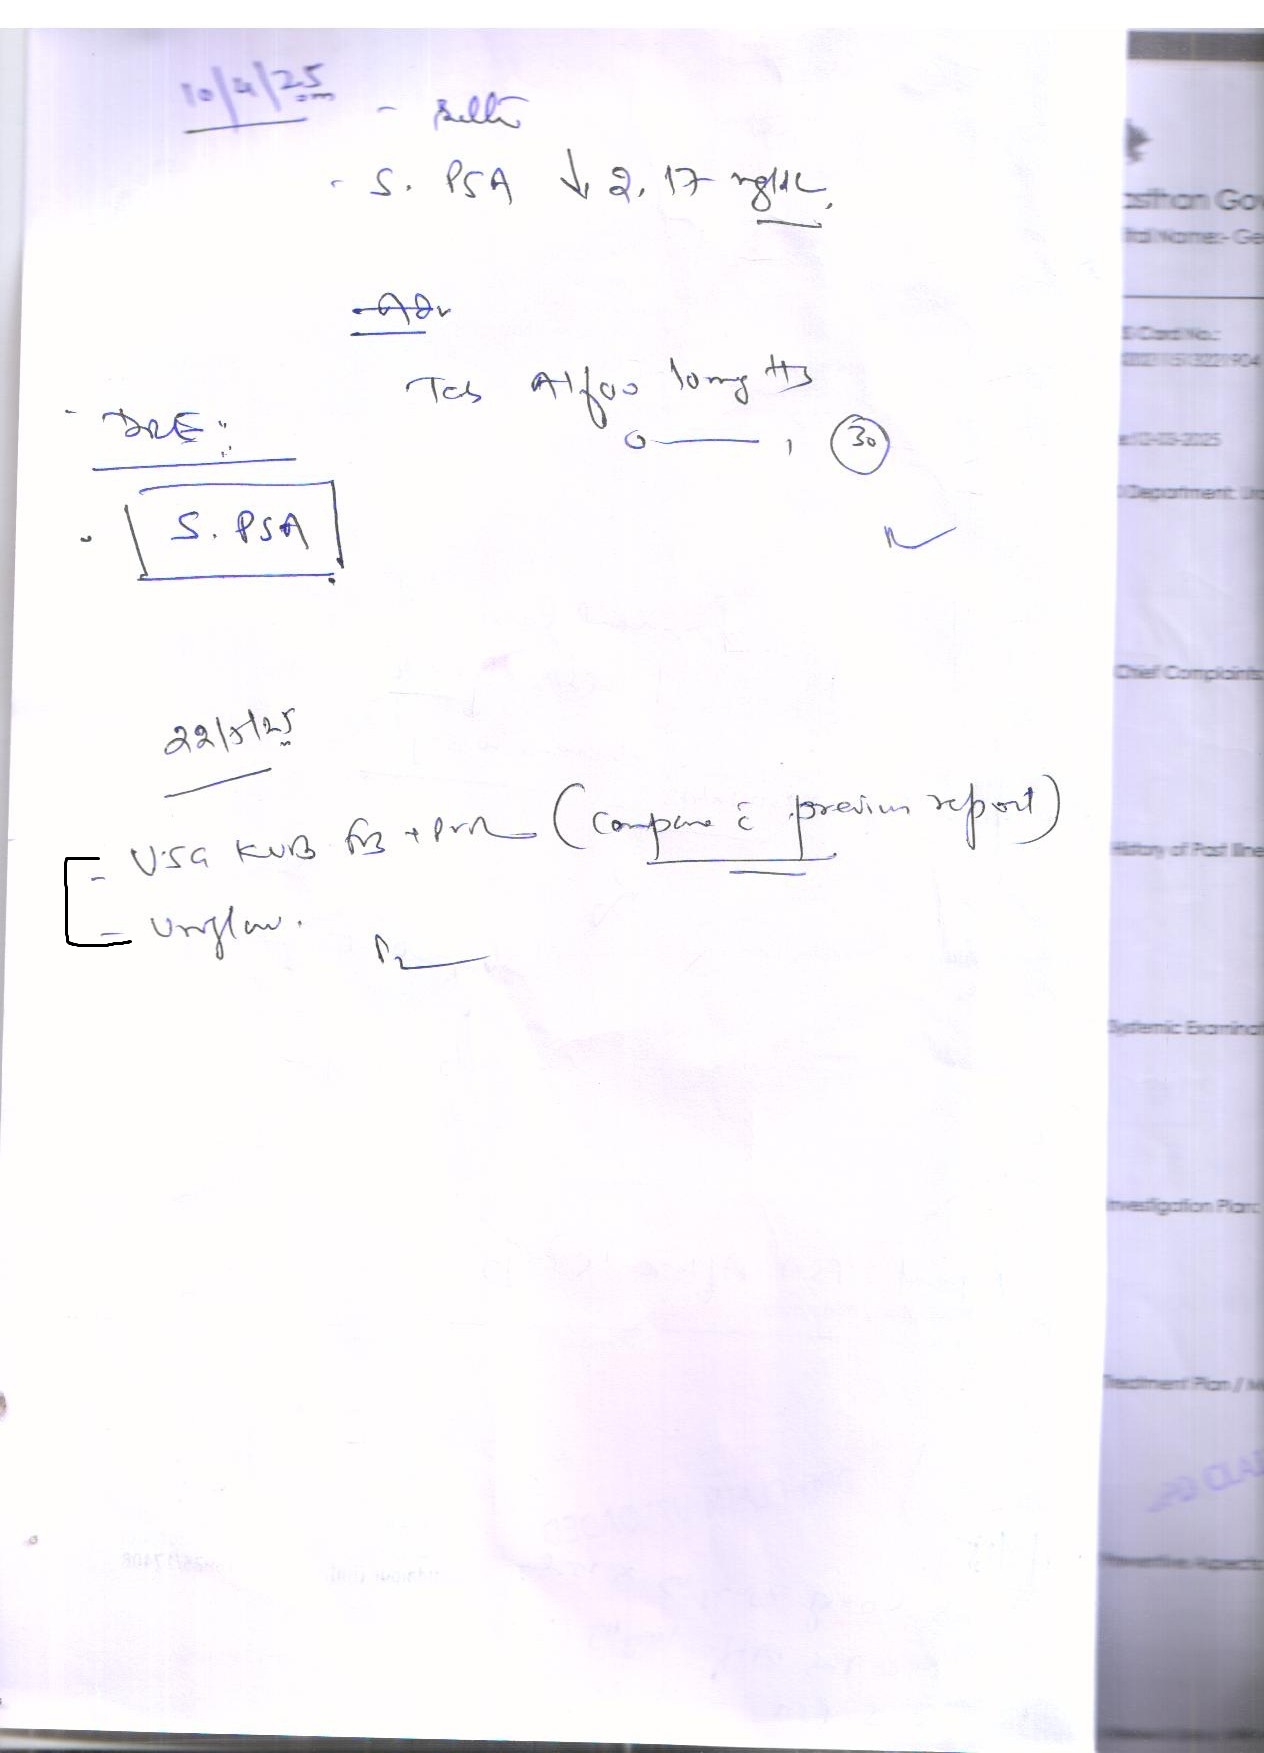 10/4/25
- S. PSA ↓ 2.17 ng/dL.
Adv
Tab Alfoo 10mg HS
0 ——— 1 (30)
- DRE:
- S. PSA
22/5/25
- USG KUB + PVR (Compare c̄ previous report)
- Uroflow.
asthan Gov
ital Name:- Ge
Card No.:
e:12-03-2025
Department: Uro
Chief Complaints
History of Past Illne
Systemic Examinat
Investigation Plan:
Treatment Plan / M
Preventive Aspects